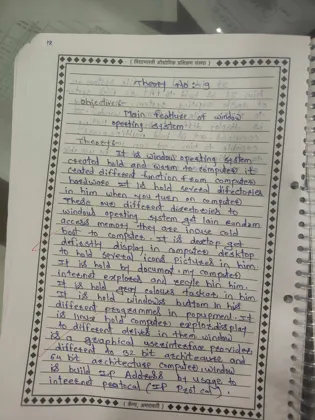 12
( विद्याभारती औद्योगिक प्रशिक्षण संस्था )
Theory No :- 9
Objectives:-
Main feature of window
operating system
Theory:-
It is window operating system
created hold and warm to computer it
ceated different function from computer
hardware It is hold several ditectories
in him when you turn on computer
These are different directories to
windows opeeting system get lain Random
access memory they are inouse cold
boot to computer. It is desctop got
defirstly display in computer desktop
to hold several icons pictures in him.
It is hold by document. my computer
internet explored and recycle bin him.
It is hold gray colours tasker in him
It is hold windows button in his
different programmes in popupment. It
is linux hold computer explor.display
to different desks in them window
is a graphical userinterface provides
different to 32 bit architecture and
64 bit architecture computer window
is build IP Address by usage to
internet protocal (IP